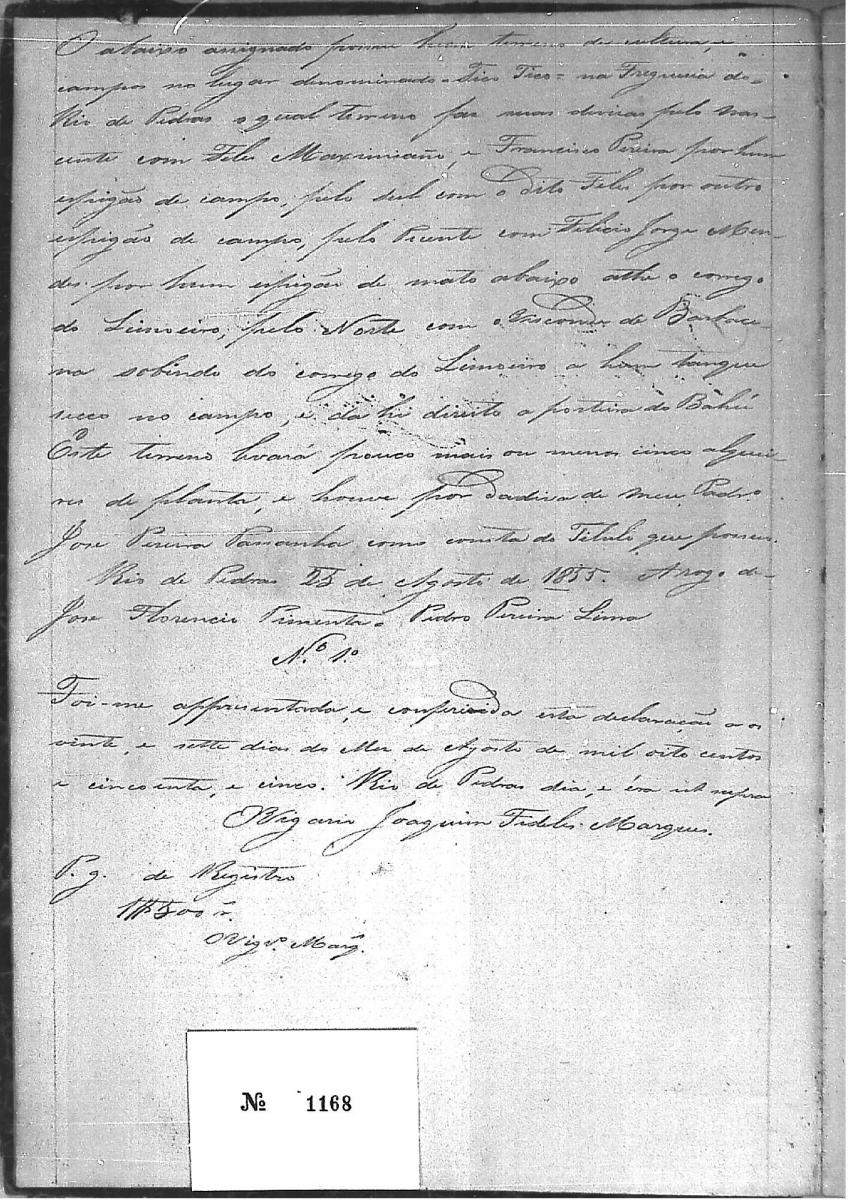 O abaixo assignado possue hum terreno de cultura, e
campos no lugar denominado = Tico Tico = na Freguesia do
Rio de Pedras o qual terreno faz suas divisas pelo nas-
cente com Felis Maximiano, e Francisco Pereira por hum
espigão de campo, pelo sul com o Dito Felis por outro
espigão de campo, pelo Puente com Felicio Jorge Men-
des por hum espigão de mato abaixo athe o corrego
do Limoeiro, pelo Norte com o Visconde de Barbace-
na sobindo do corrego do Limoeiro a hum tanque
secco no campo, e da hi direito a porteira do Bahú
Este terreno levará pouco mais ou menos cinco alquei-
res de planta, e houve por dadiva de meu Padro
Jose Pereira Passanha como consta do Titulo que possuo.
Rio de Pedras 25 de Agosto de 1855. A rogo de
Jose Florencio Pimenta = Pedro Pereira Lima
N.º 1.º
Foi-me appresentada, e conferida esta declaração aos
vinte, e sette dias do Mez de Agosto de mil oito centos
e cincoenta, e cinco. Rio de Pedras dia, e éra ut supra
O Vigario Joaquim Fidelis Marques.
P. g. de Registro
1$500 r.
O Vigr.º Marq.
Nº 1168